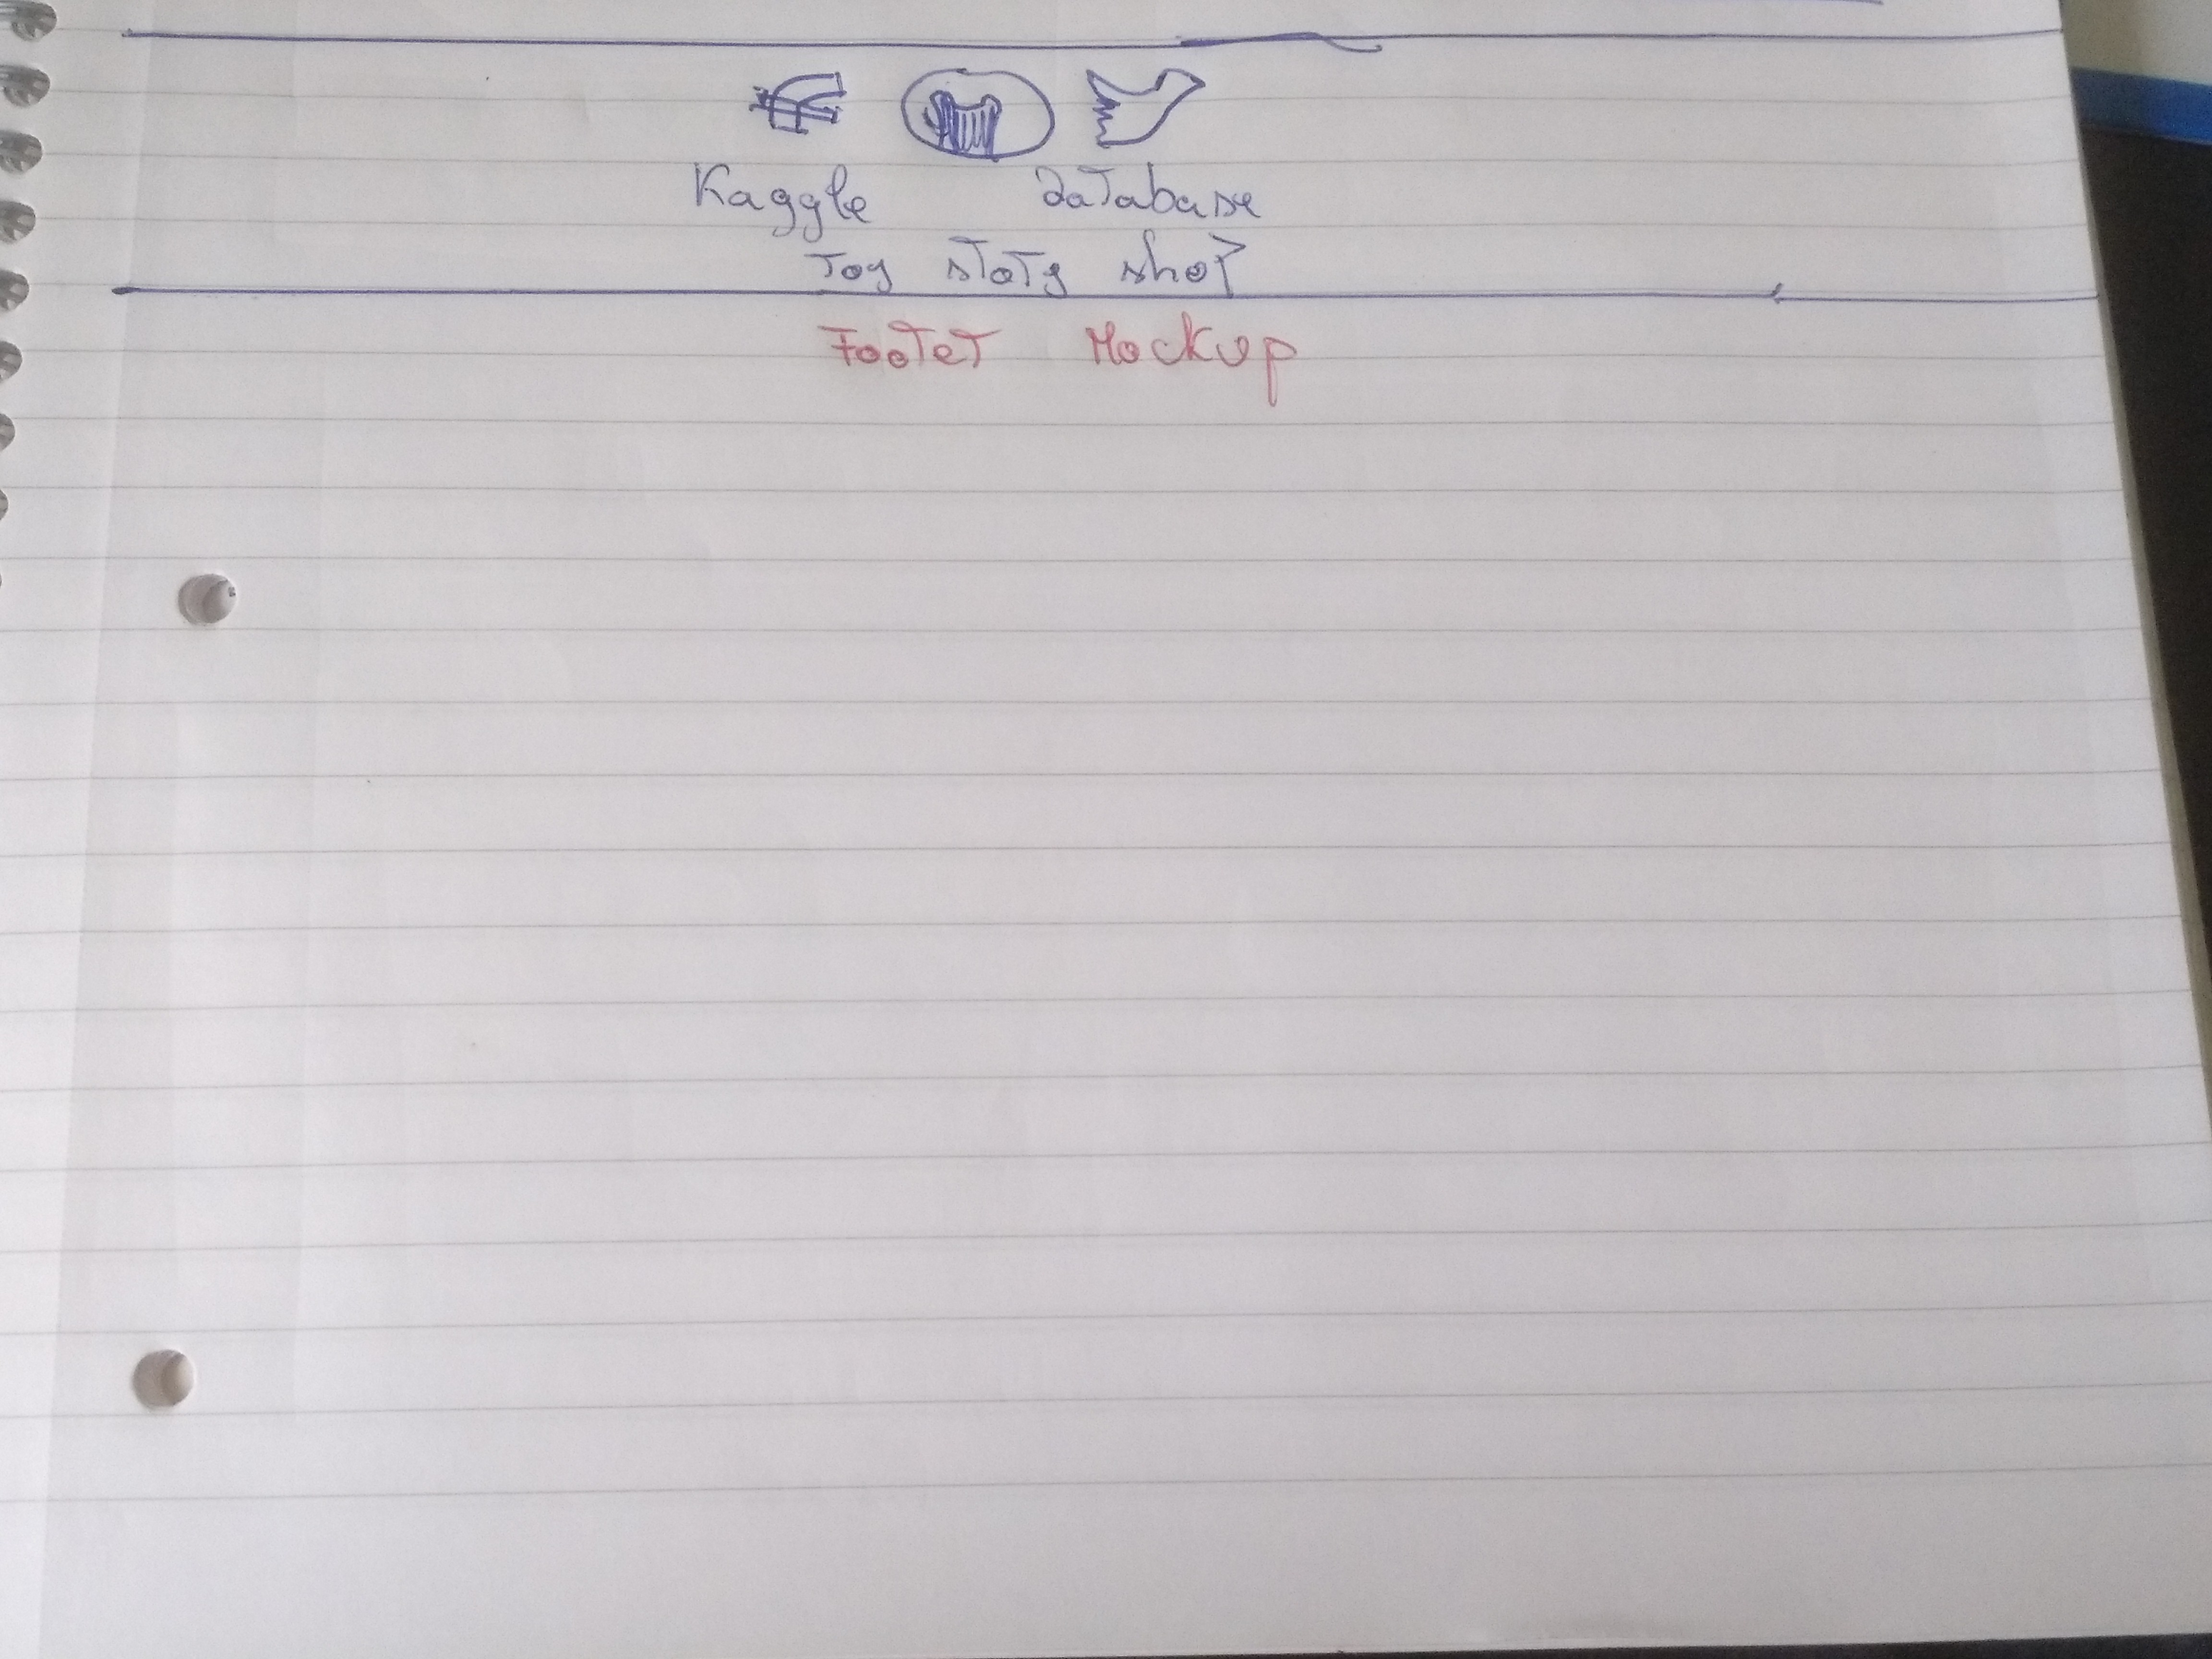 Kaggle database
Toy story shop
Footer Mockup